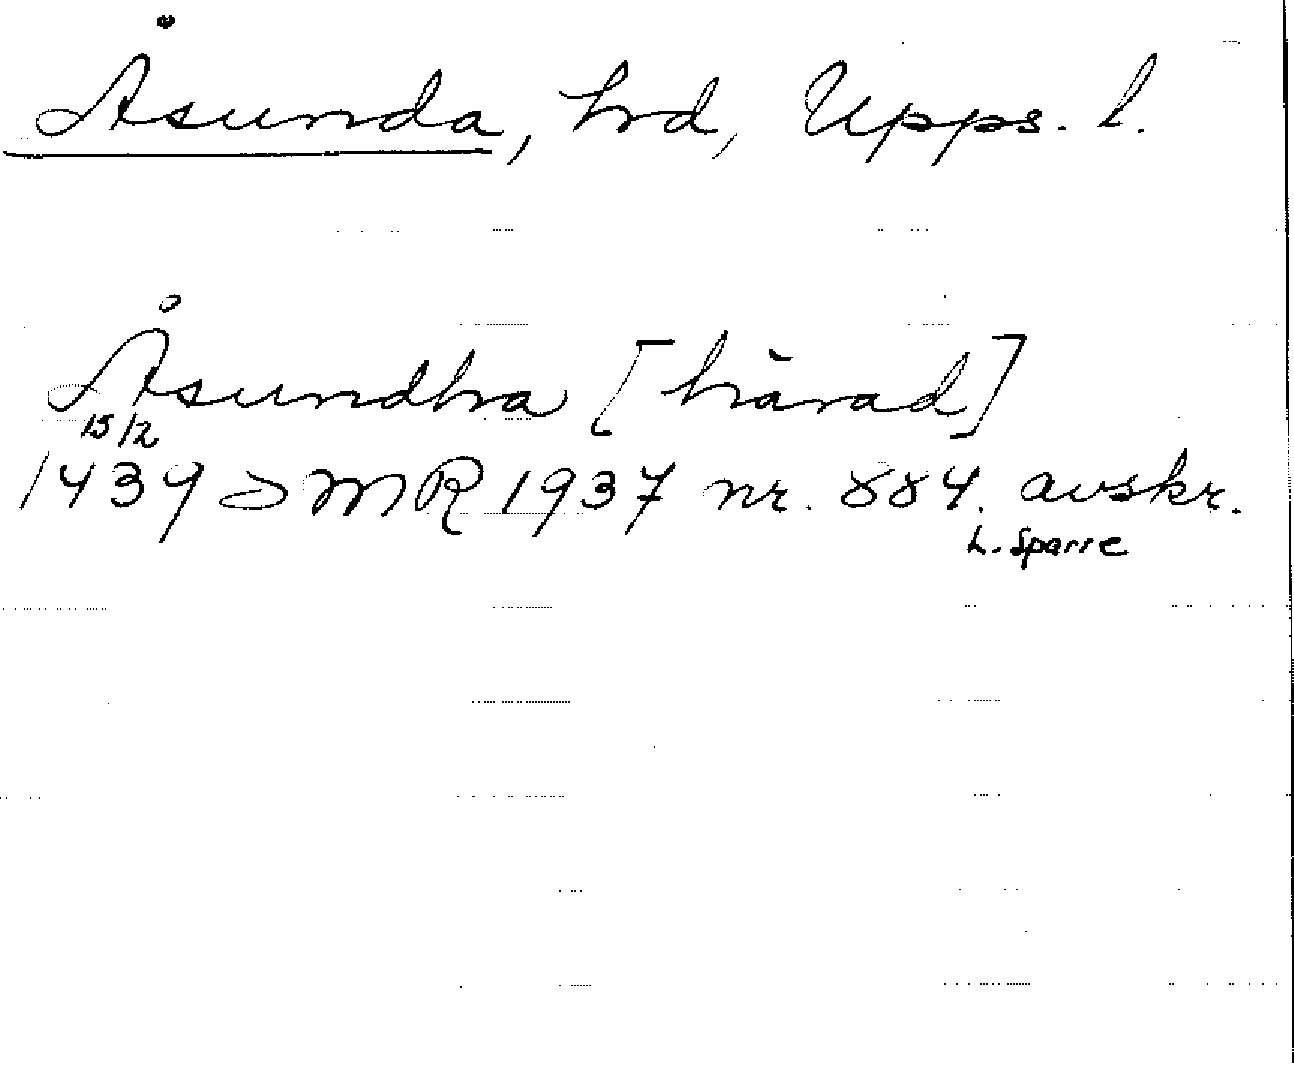 Åsunda, hd, Upps. l.
Åsundha [härad]
15/2
1439 SMR 1937 nr. 884. avskr.
L. Sparre